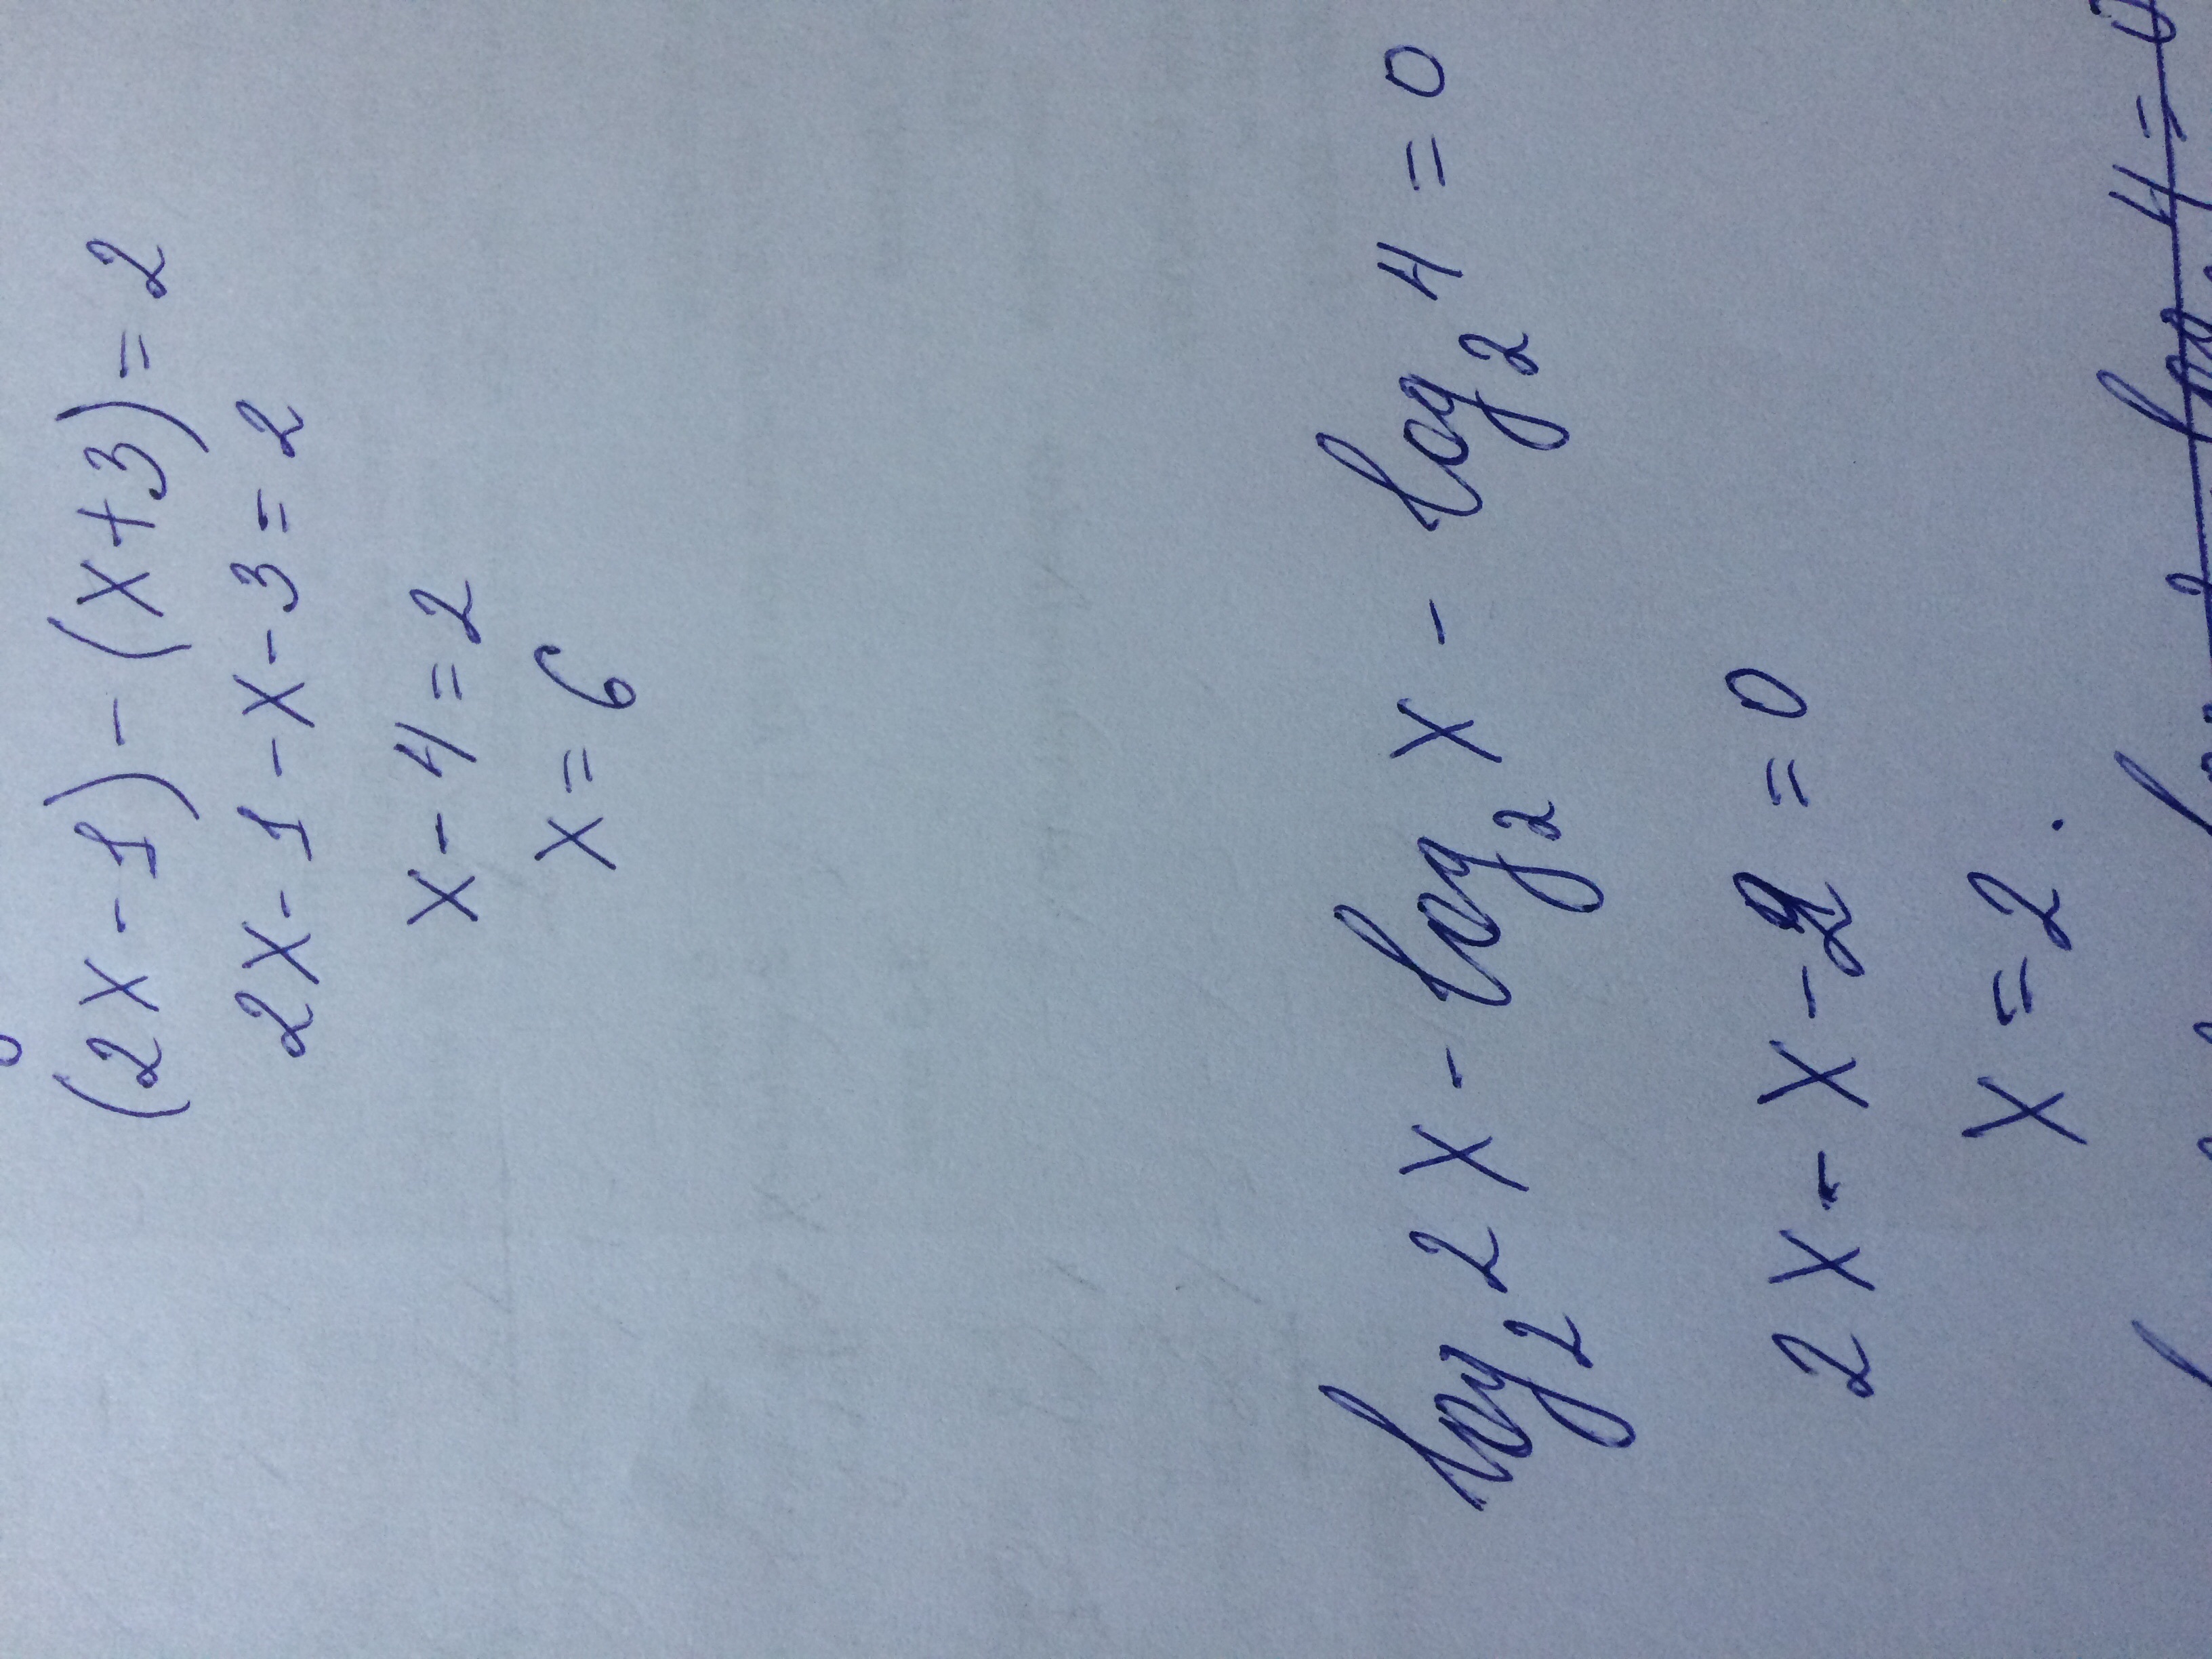 (2x-1)-(x+3)=2
2x-1-x-3=2
x-4=2
x=6
log₂2x-log₂x-log₂4=0
2x-x-2=0
x=2.